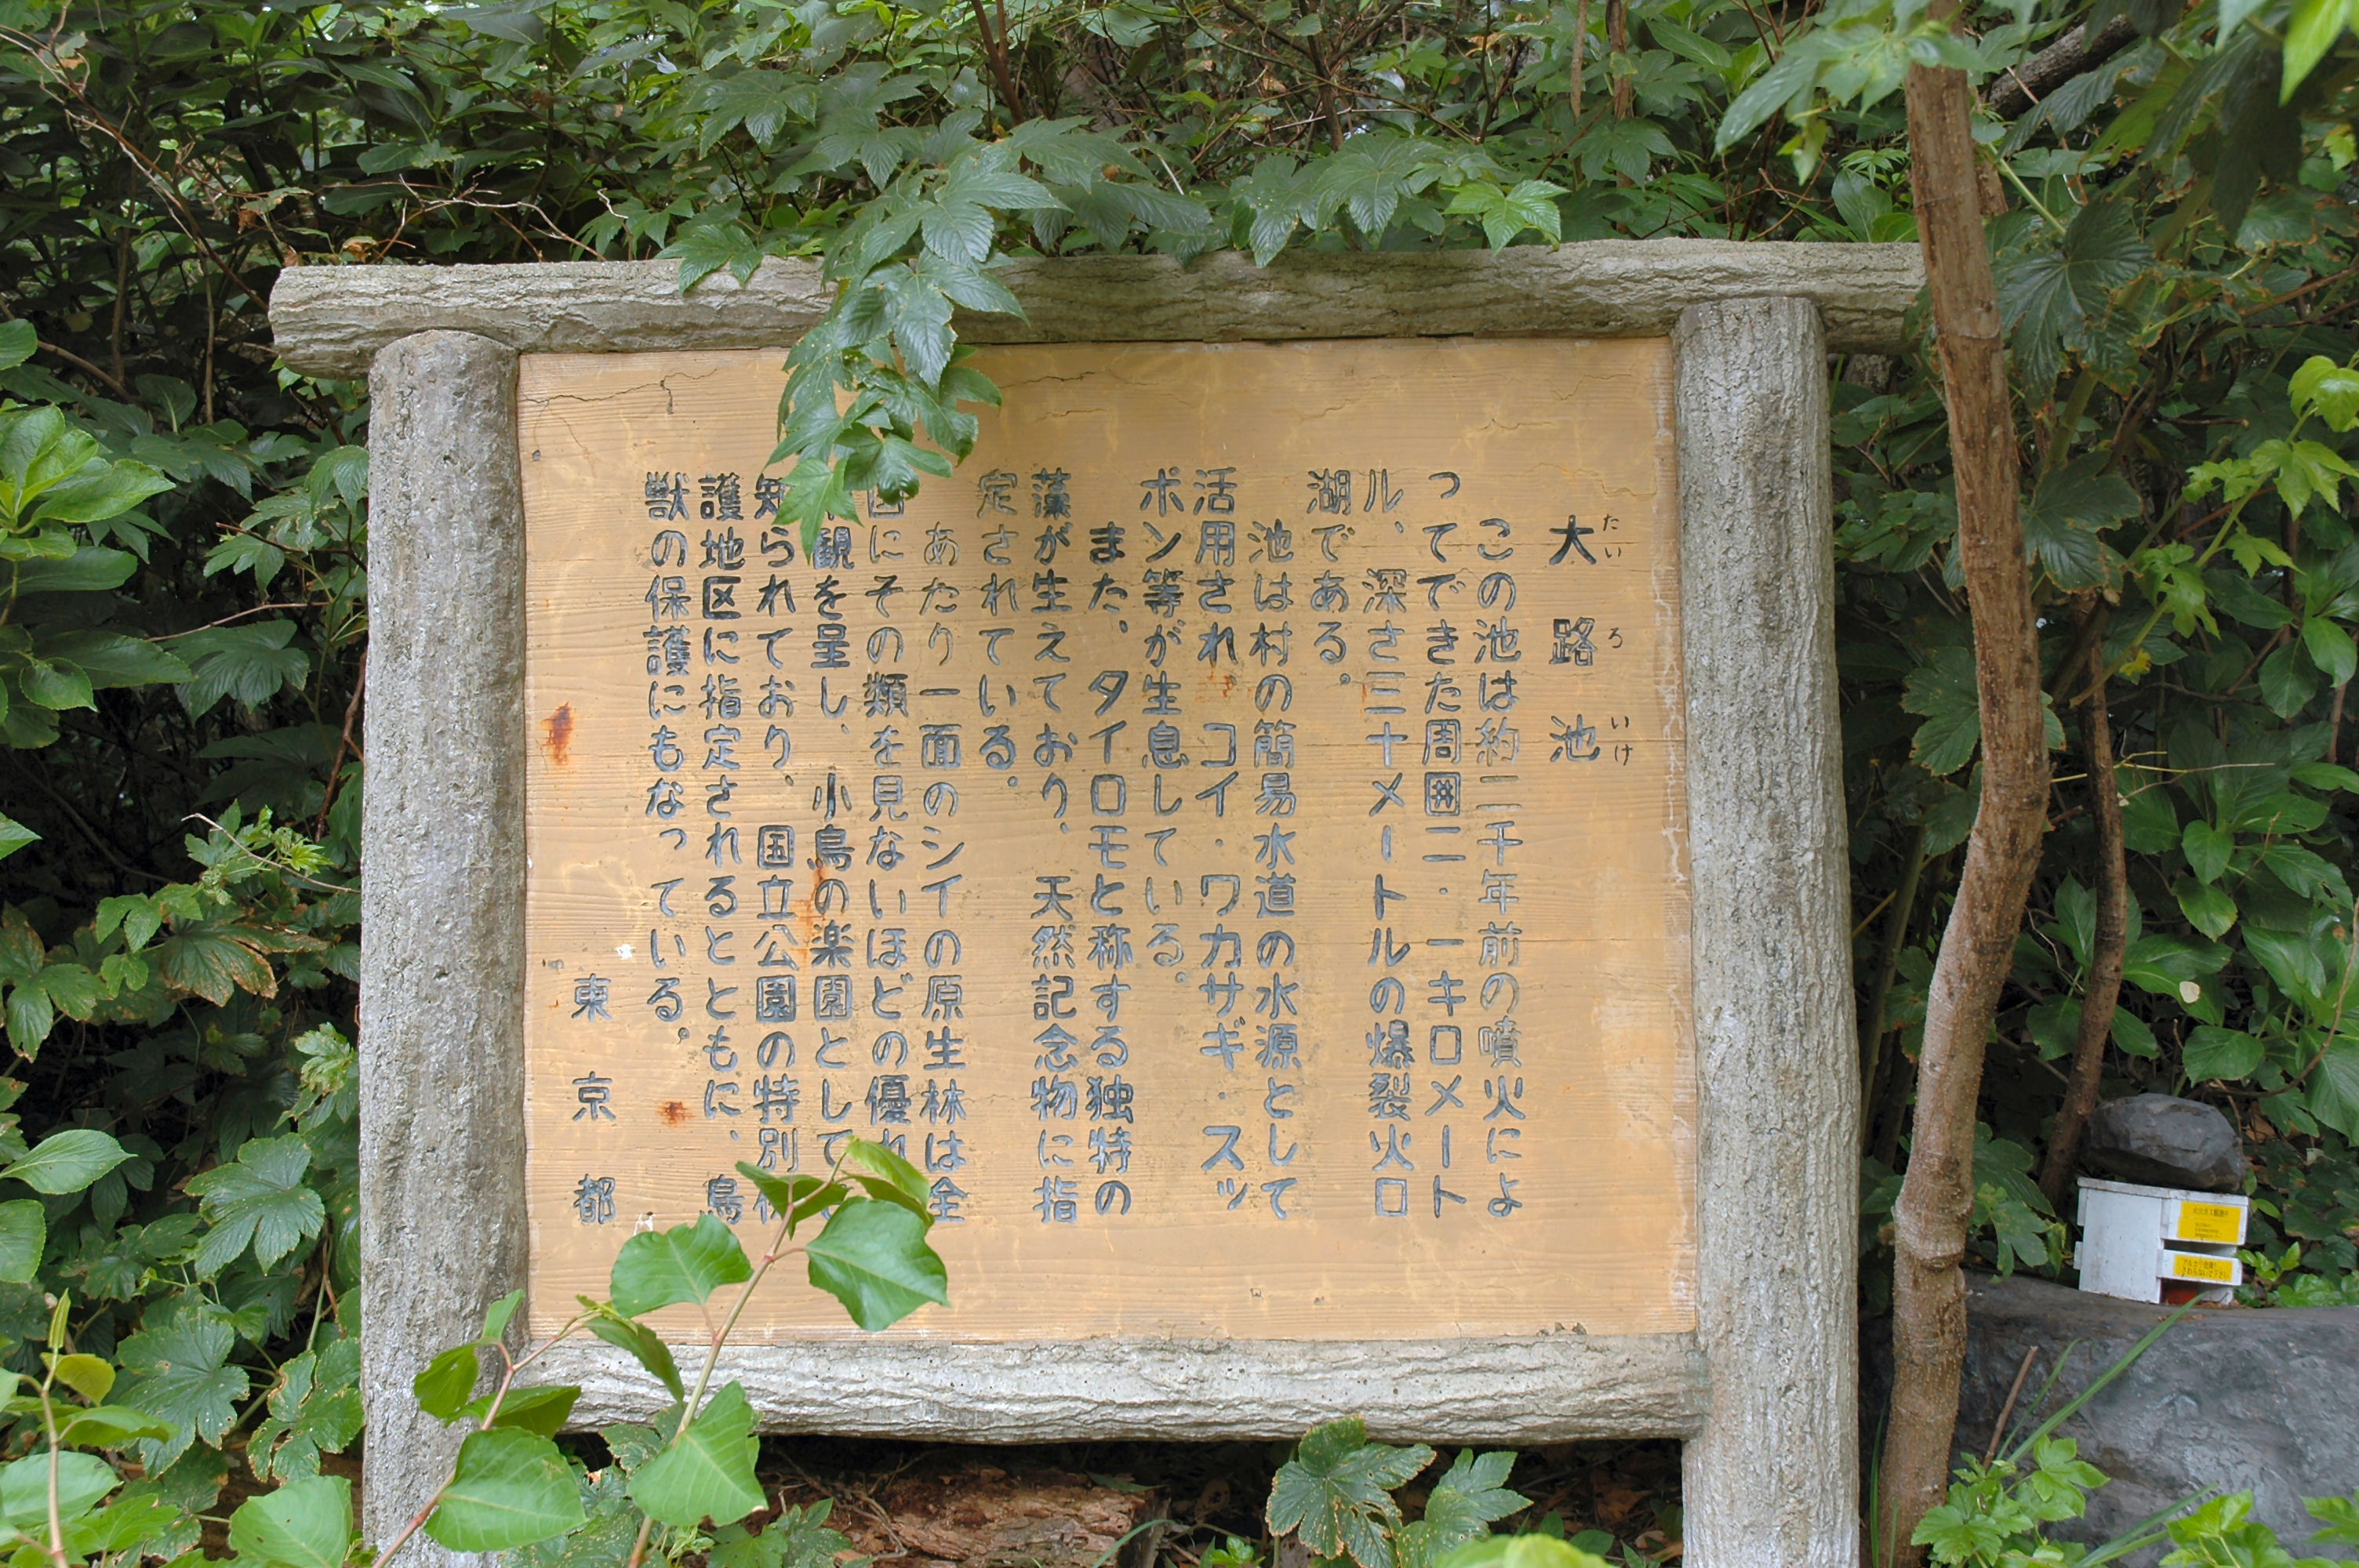 大路池
たいろいけ
この池は約二千年前の噴火によ
ってできた周囲二・一キロメート
ル、深さ三十メートルの爆裂火口
湖である。
池は村の簡易水道の水源として
活用され、コイ・ワカサギ・スッ
ポン等が生息している。
また、タイロモと称する独特の
藻が生えており、天然記念物に指
定されている。
あたり一面のシイの原生林は全
国にその類を見ないほどの優れ
観を呈し、小鳥の楽園として
知られており、国立公園の特別保
護地区に指定されるとともに、鳥
獣の保護にもなっている。
東京都
さわらないで下さい